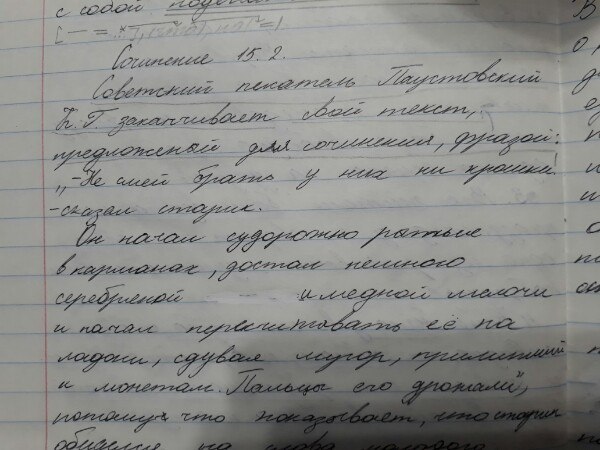 с собой
Сочинение 15.2.
Советский писатель Паустовский
К.Г. заканчивает свой текст,
предложеный для сочинения, фразой:
„-Не смей брать у них ни крошки
-сказал старик.
Он начал судорожно рытье
в карманах, достал немного
серебреной и медной мелочи
и начал пересчитовать её на
ладони, сдувая мусор, прилипший
к монетам. Пальцы его дрожали",
потому что показывает, что старик
обиделся на слова молодого